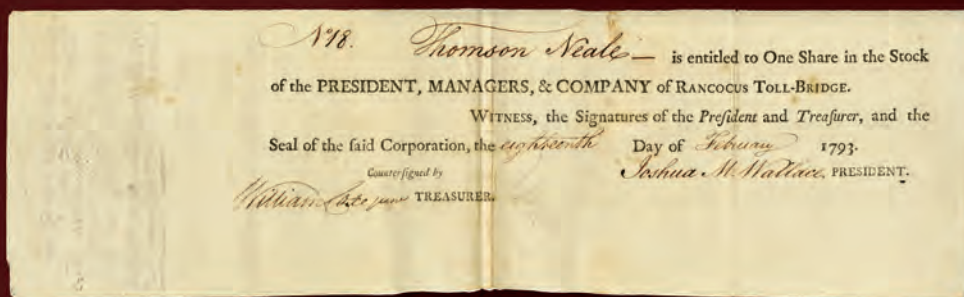 No 18. Thomson Neale — is entitled to One Share in the Stock
of the PRESIDENT, MANAGERS, & COMPANY of RANCOCUS TOLL-BRIDGE.
WITNESS, the Signatures of the Preſident and Treaſurer, and the
Seal of the ſaid Corporation, the eighteenth Day of February 1793.
Counterſigned by Joshua M. Wallace, PRESIDENT.
William junr TREASURER.